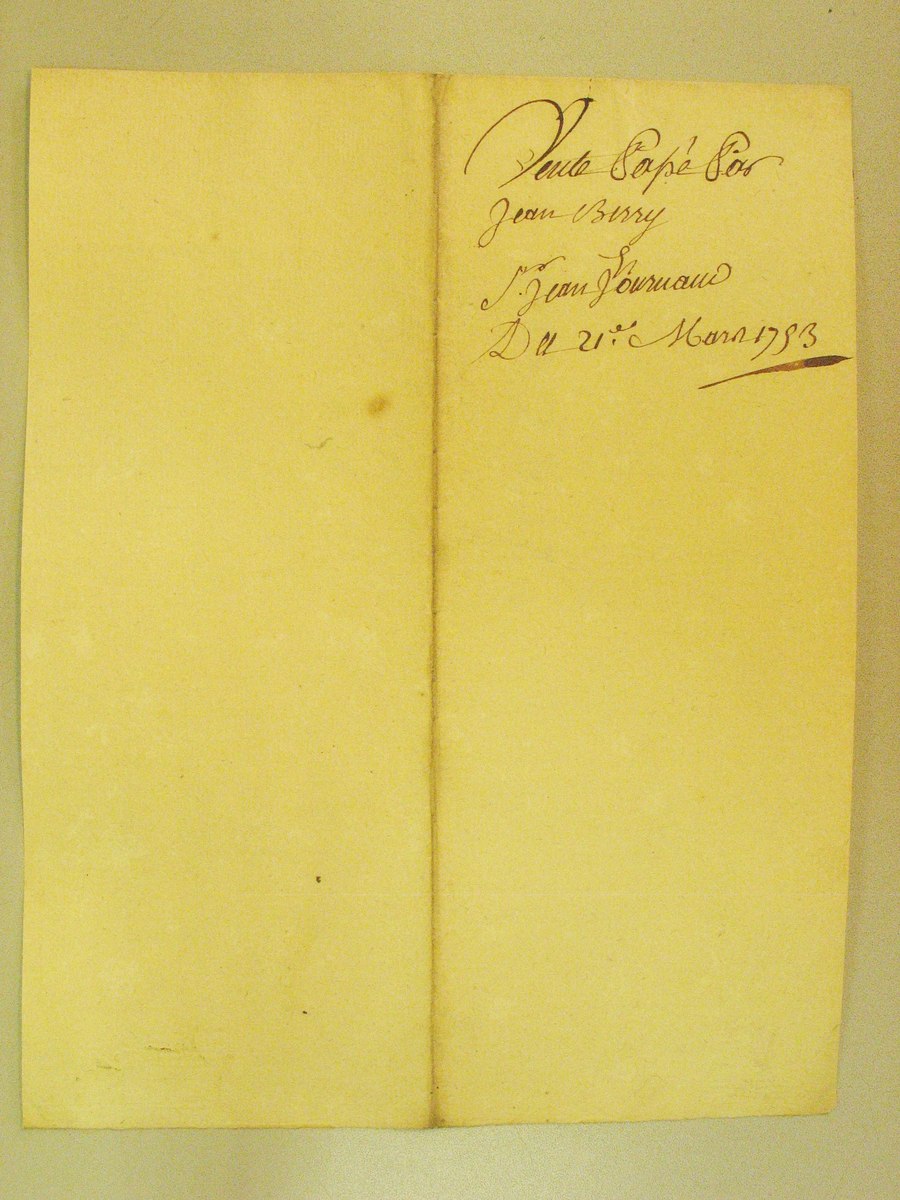 Vente Papé Par
Jean Berry
Sr. Jean Fournaud
Du 21e. Mars 1793